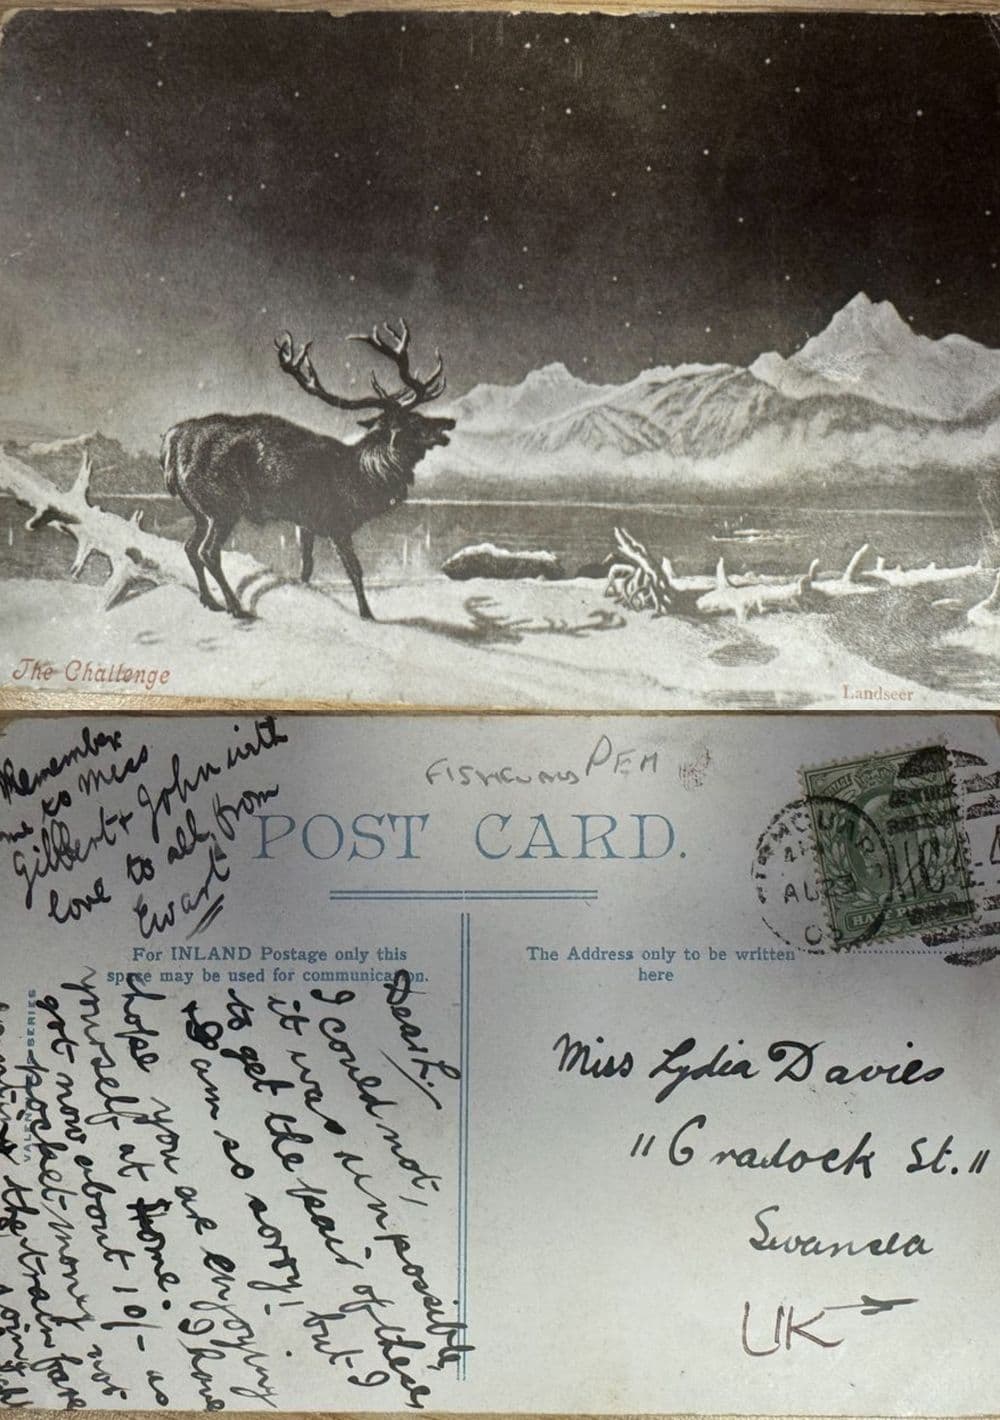 The Challenge
Landseer
Remember
me to Miss
Gilbert + John with
love to all, from
Ewart
PEM
POST CARD.
HALF PENNY
For INLAND Postage only this
space may be used for communication.
The Address only to be written
here
Dear L.,
I could not,
it was unpossible,
to get the pair of these
I am so sorry! but I
hope you are enjoying
yourself at home. I have
got now about 10/- as
pocket money not
the train fare
VALENTINES SERIES
Miss Lydia Davies
"Cradock St."
Swansea
UK